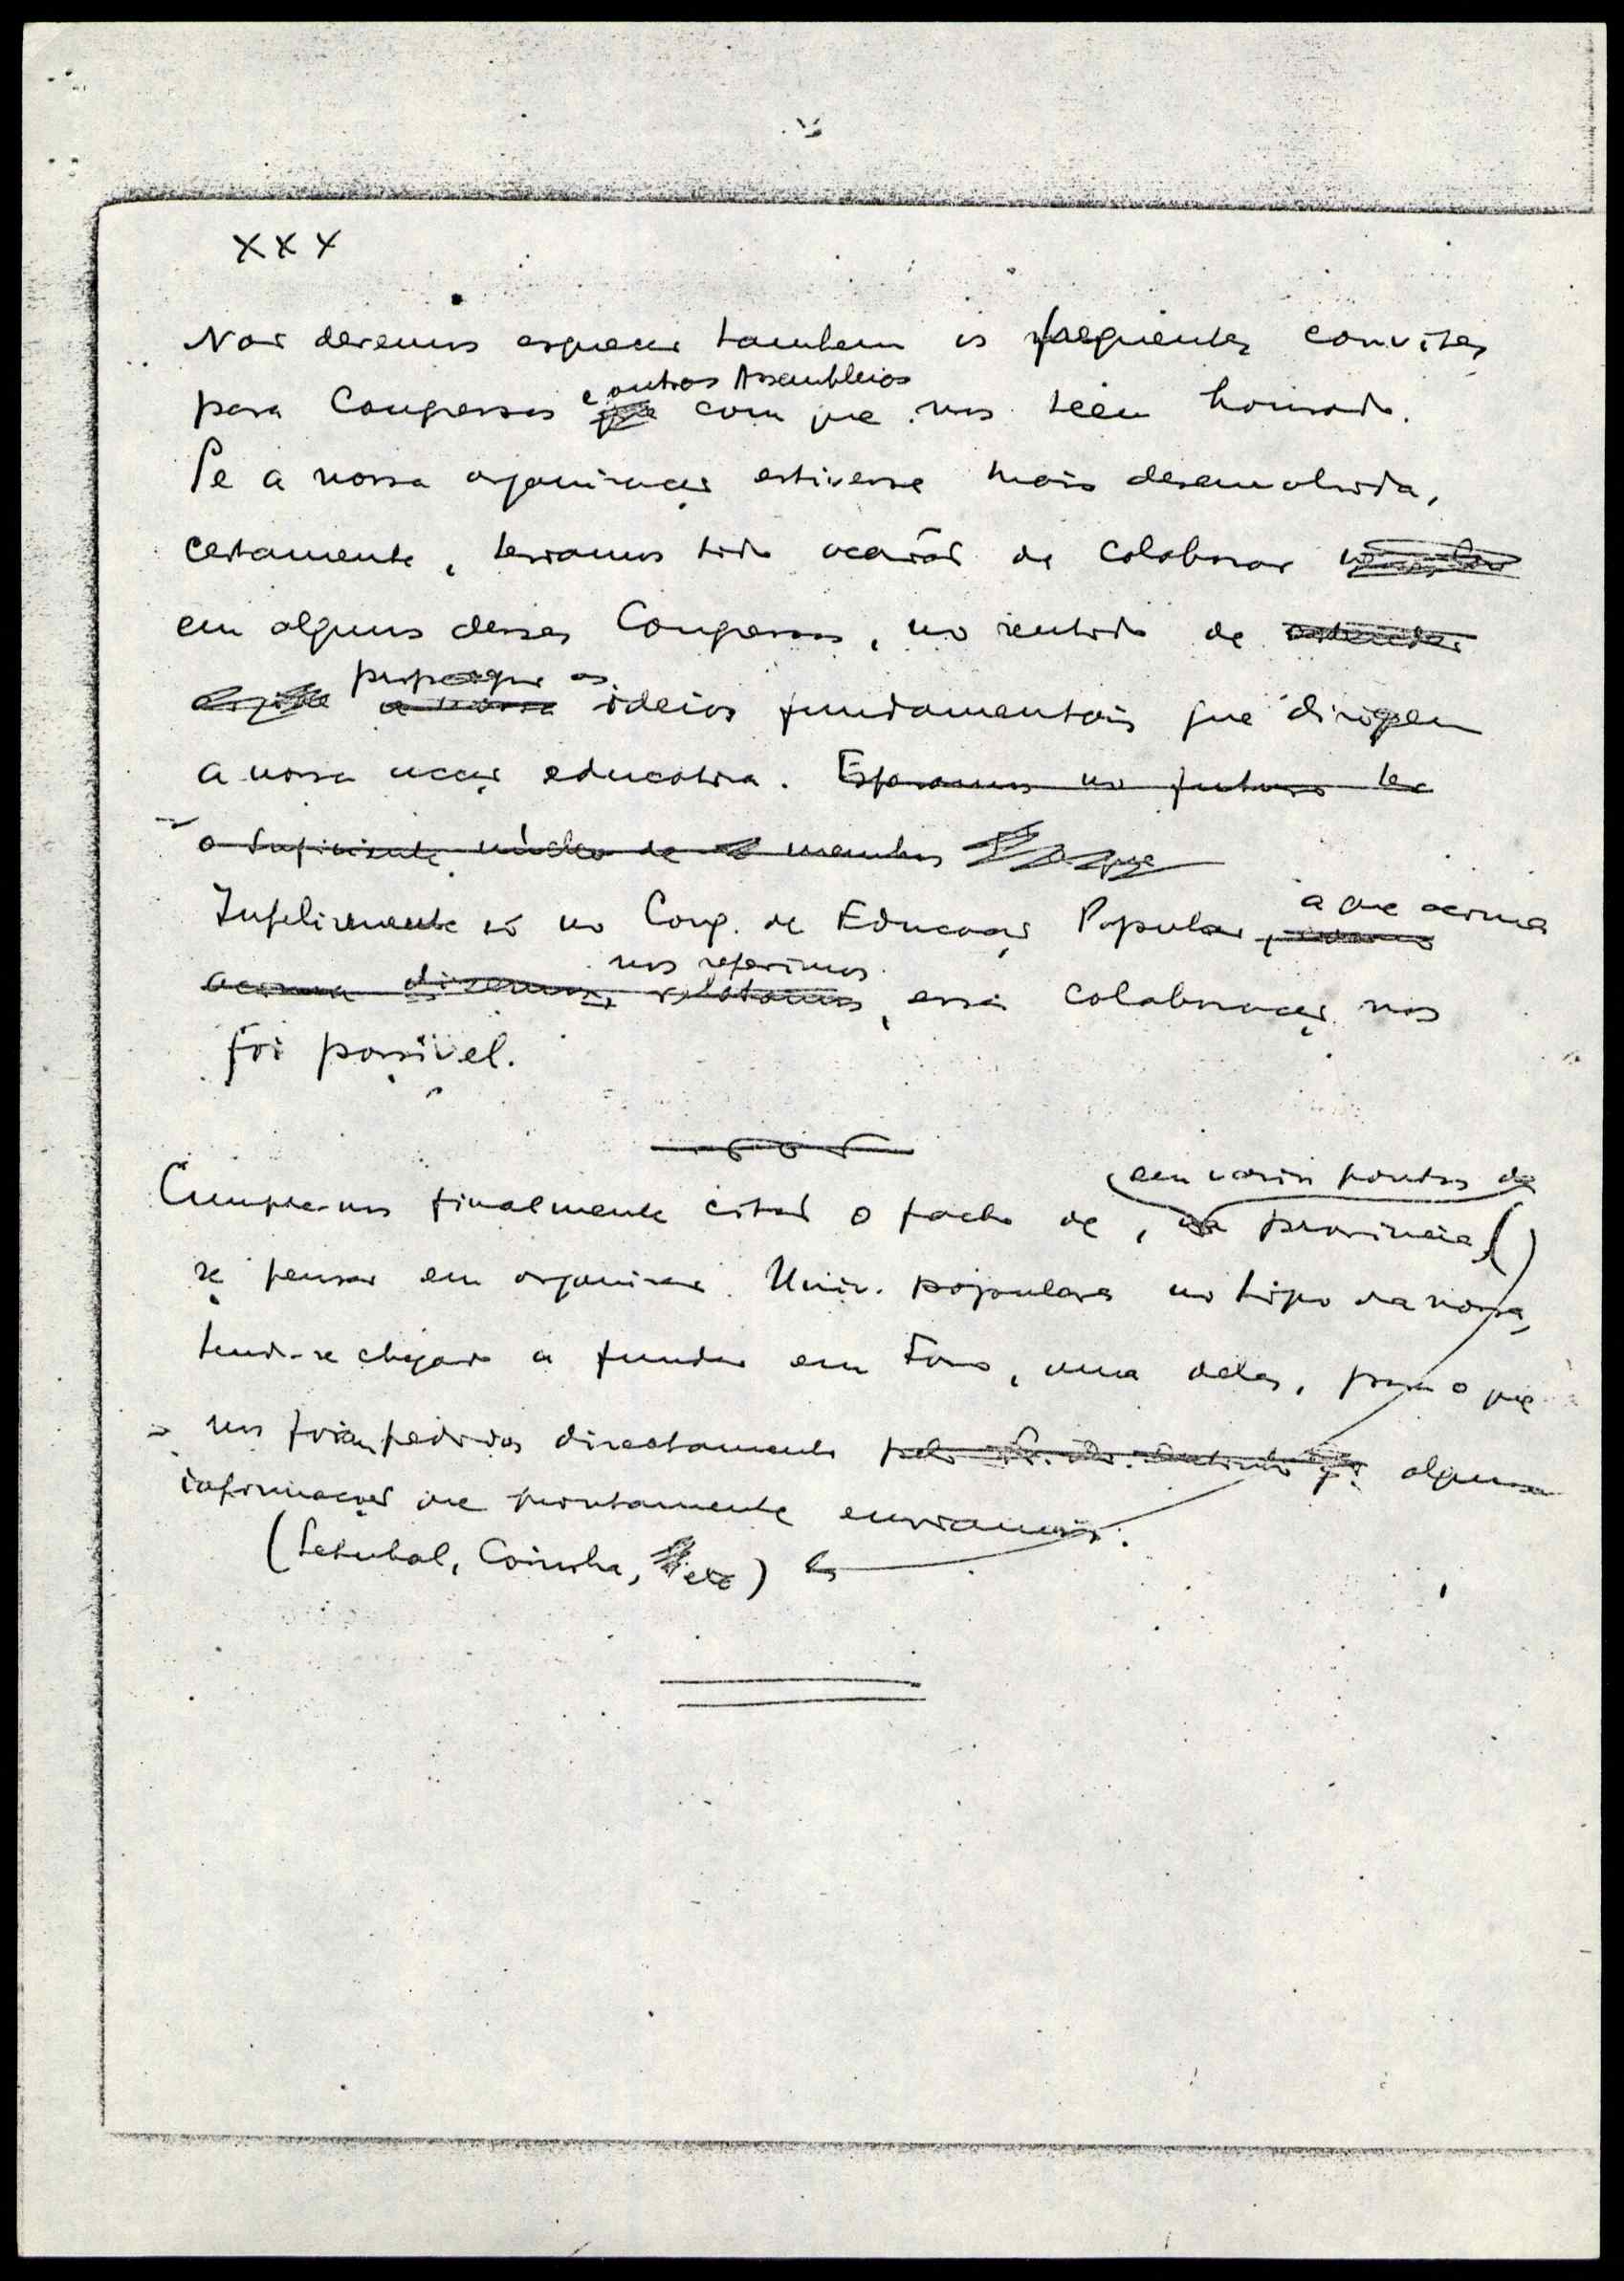 XXX
Não devemos esquecer tambem os frequentes convites
e outras Assembleias
para Congressos que com que nos teem honrado.
Se a nossa organisação estivesse mais desenvolvida,
certamente, teriamos tido ocasião de colaborar
em alguns desses Congressos, no sentido de
propagar as
a nossa ideias fundamentais que dirigem
a nossa acção educativa. Esperamos no futuro ter
o suficiente núcleo de membros
a que acima
Infelizmente só no Cong. de Educação Popular,
nos referimos
acima dissemos, relatamos, essa colaboração nos
foi possivel.
em varios pontos da
Cumpre-nos finalmente citar o facto de, na provincia ( )
se pensar em organisar Univ. populares no tipo da nossa,
tendo-se chegado a fundar em Faro, uma delas, para o que
nos foram pedidas directamente pelo algumas
informações que prontamente enviamos.
(Setubal, Coimbra, etc)